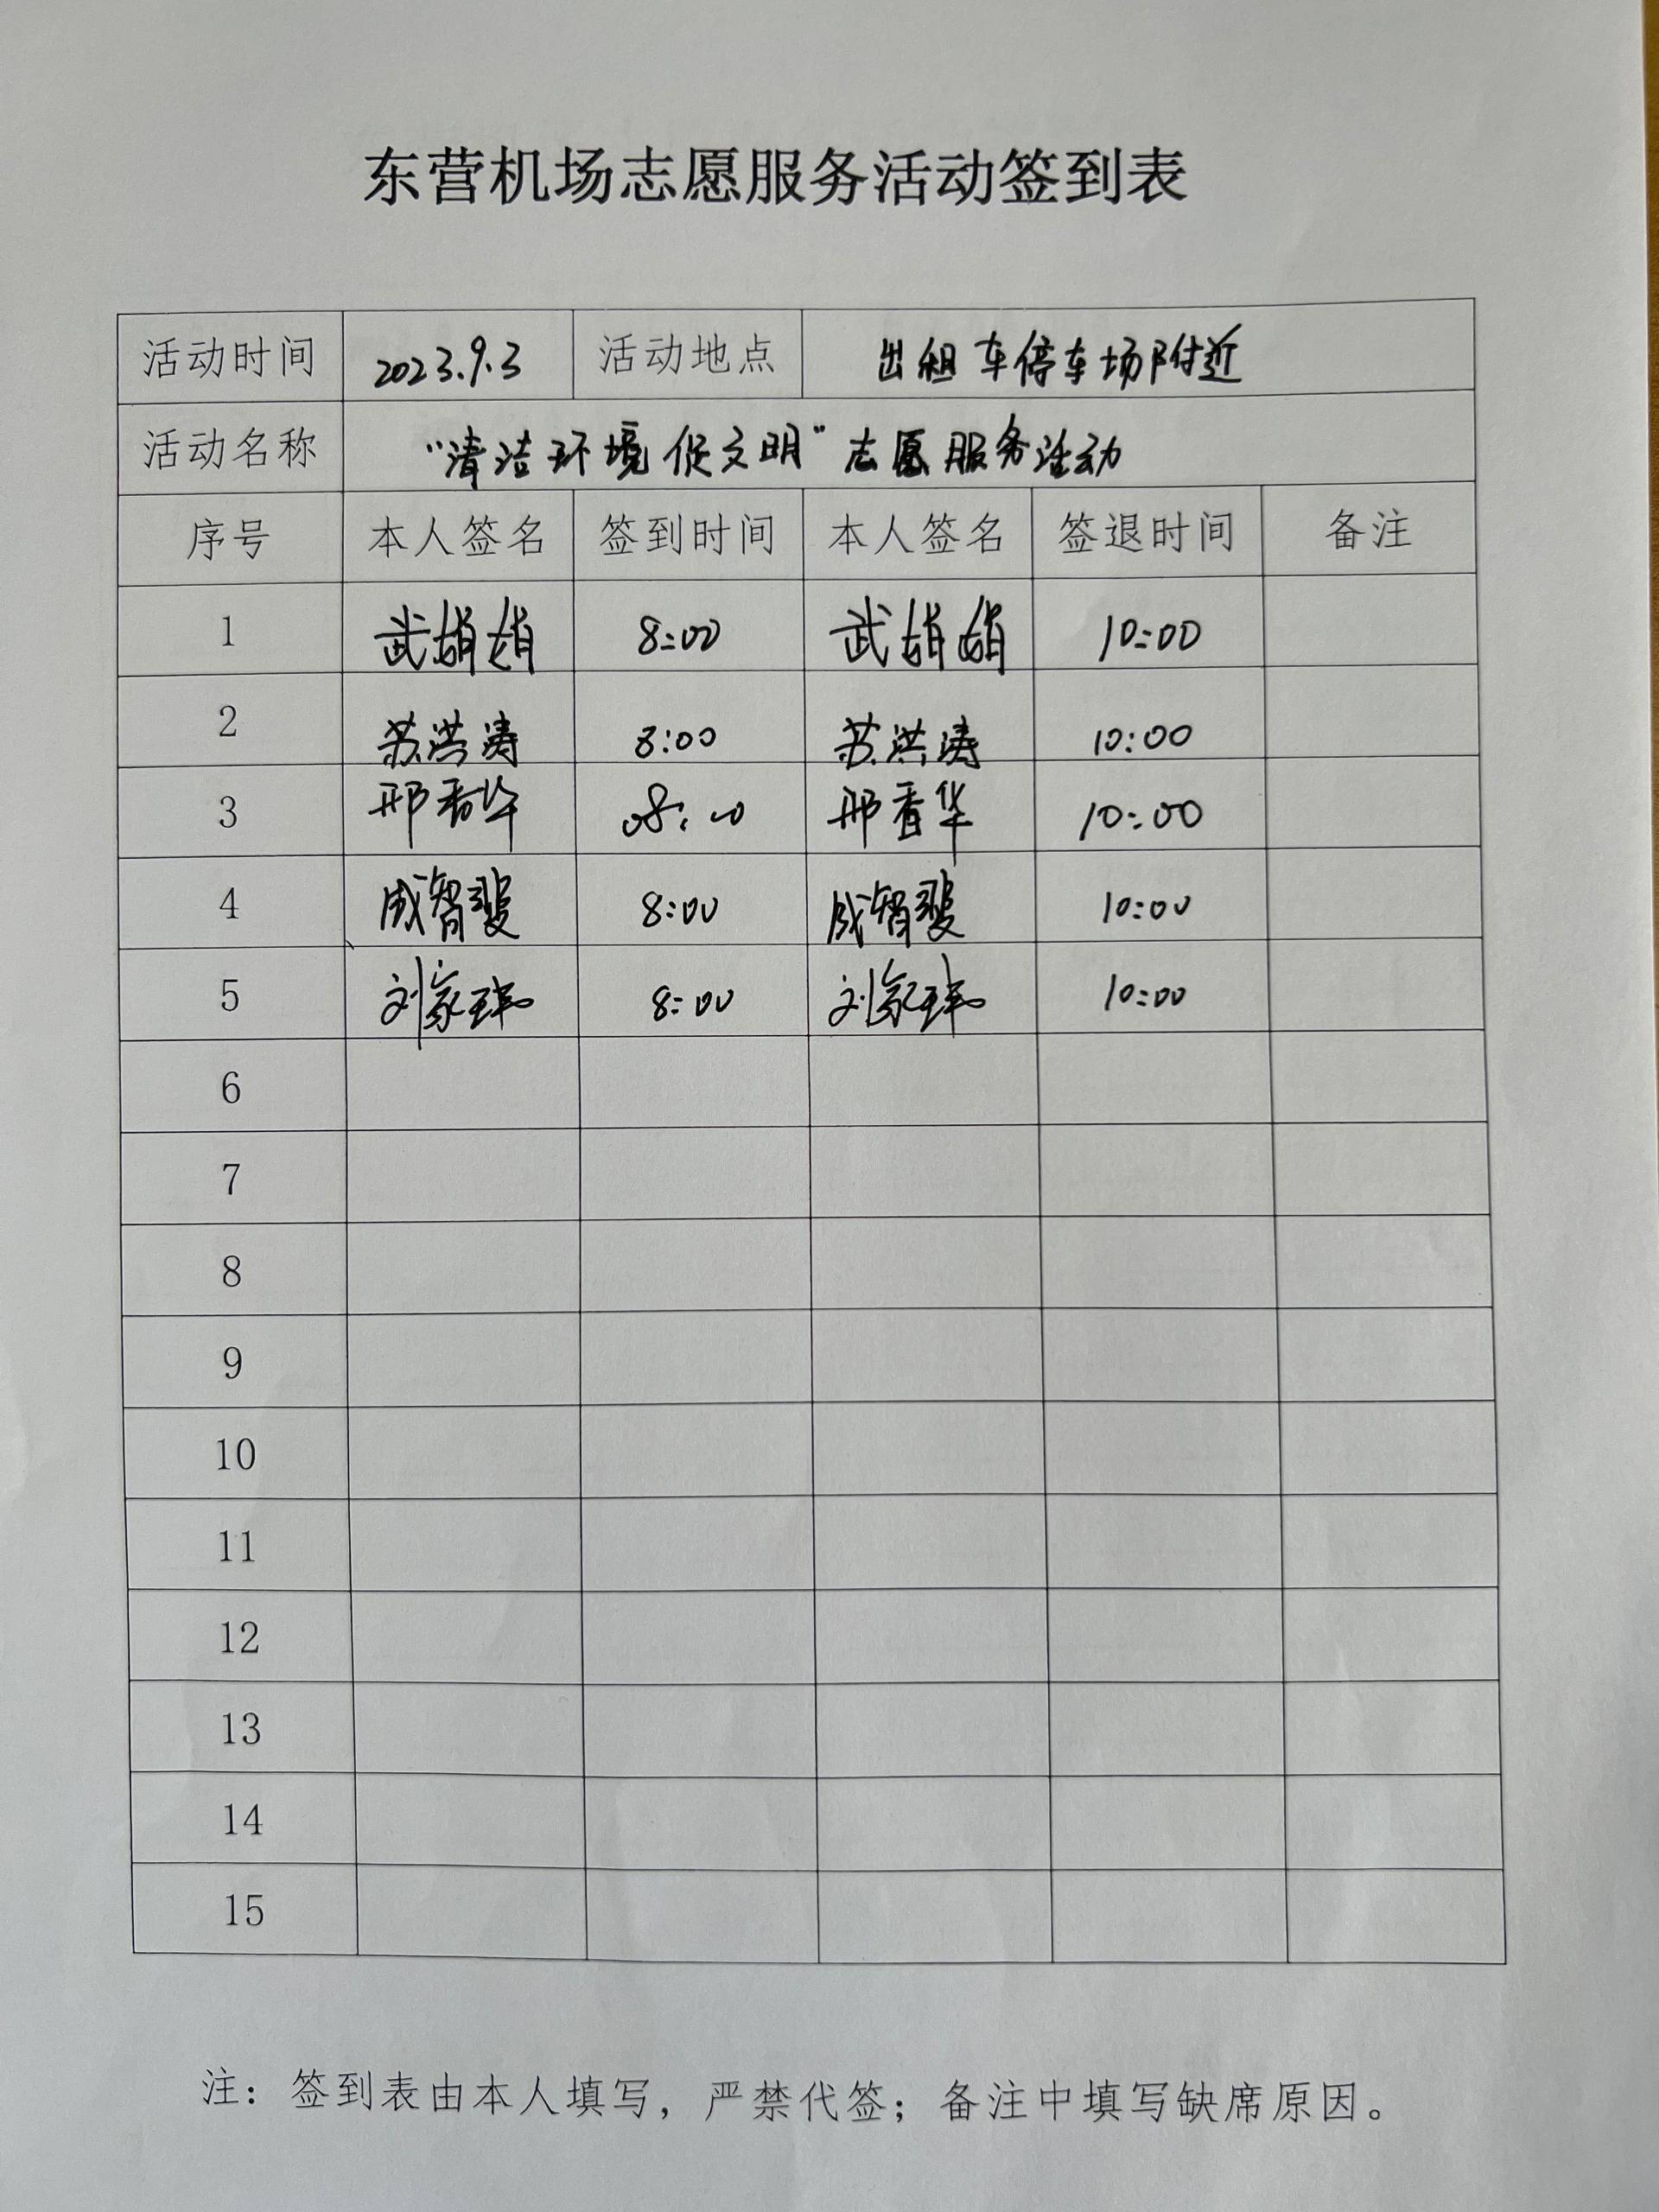 东营机场志愿服务活动签到表
活动时间 2023.9.3 活动地点 出租车停车场附近
活动名称 "清洁环境促文明"志愿服务活动
序号 本人签名 签到时间 本人签名 签退时间 备注
1 武娟娟 8:00 武娟娟 10:00
2 苏洪涛 8:00 苏洪涛 10:00
3 邢香华 08:00 邢香华 10:00
4 成智斐 8:00 成智斐 10:00
5 刘家 8:00 刘家 10:00
6
7
8
9
10
11
12
13
14
15
注：签到表由本人填写，严禁代签；备注中填写缺席原因。